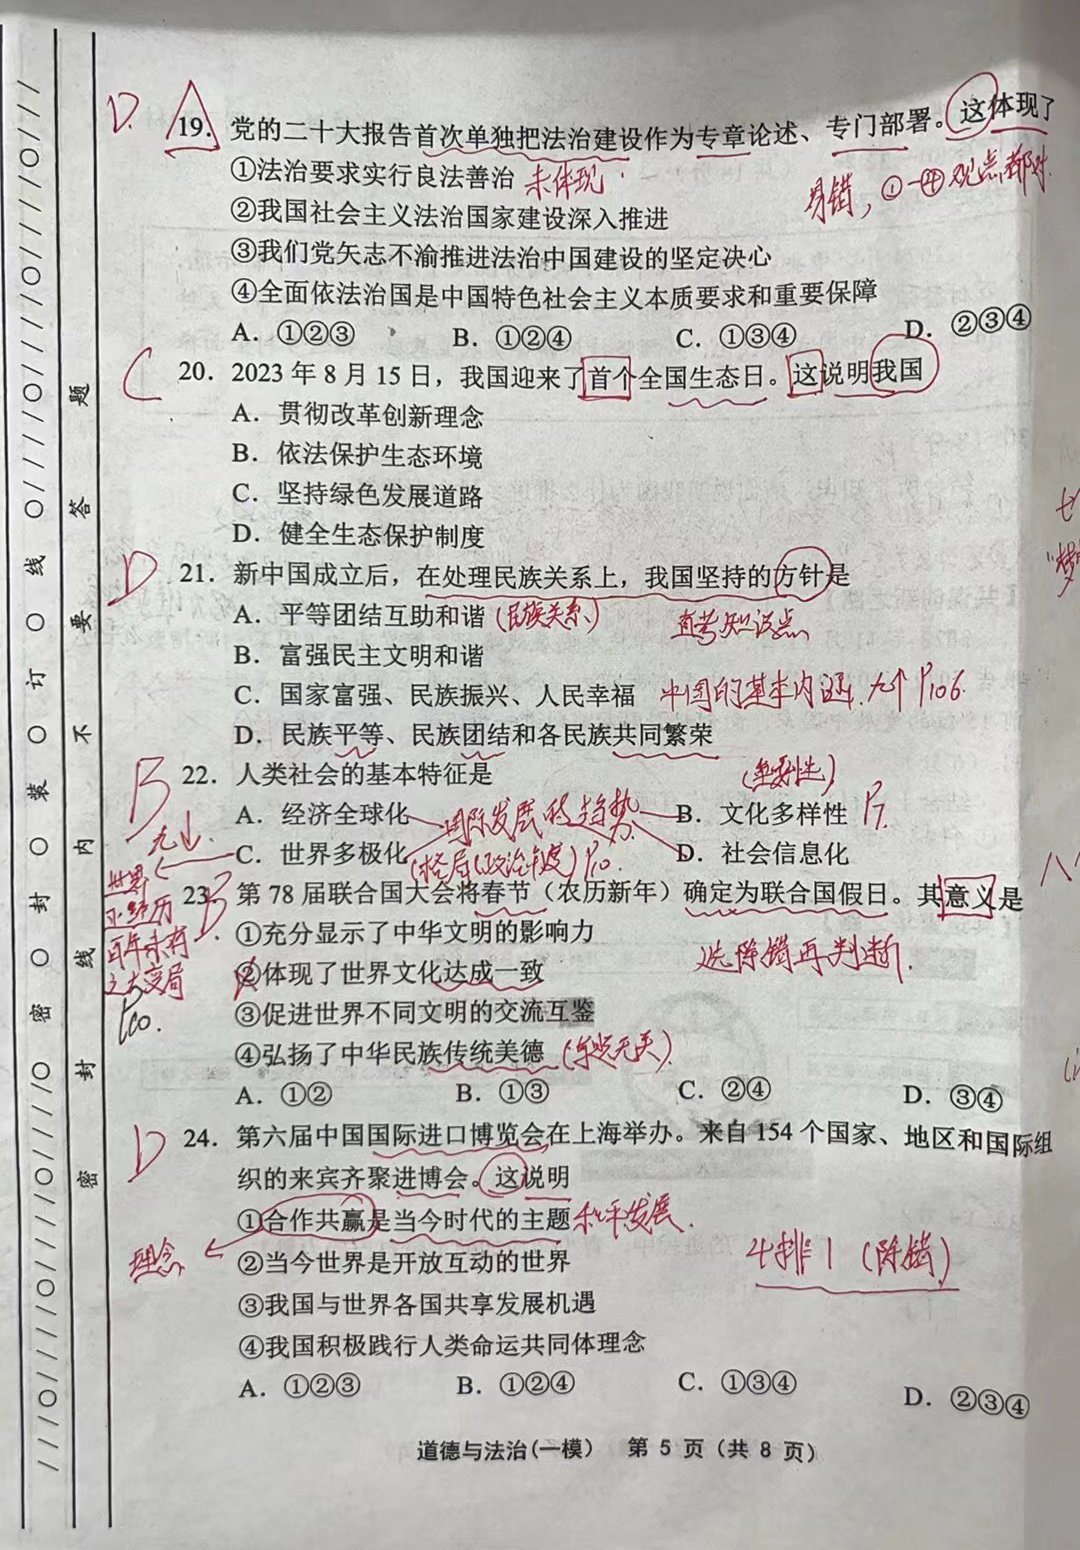 D.
19. 党的二十大报告首次单独把法治建设作为专章论述、专门部署。这体现了
①法治要求实行良法善治 未体现
易错，①-④观点都对.
②我国社会主义法治国家建设深入推进
③我们党矢志不渝推进法治中国建设的坚定决心
④全面依法治国是中国特色社会主义本质要求和重要保障
A. ①②③ B. ①②④ C. ①③④ D. ②③④
C 20. 2023 年 8 月 15 日，我国迎来了首个全国生态日。这说明我国
A. 贯彻改革创新理念
B. 依法保护生态环境
C. 坚持绿色发展道路
D. 健全生态保护制度
D 21. 新中国成立后，在处理民族关系上，我国坚持的方针是
A. 平等团结互助和谐 (民族关系) 直考知识点
B. 富强民主文明和谐
C. 国家富强、民族振兴、人民幸福 中国的基本内涵. 九个 P106.
D. 民族平等、民族团结和各民族共同繁荣
B 22. 人类社会的基本特征是 (重要性)
A. 经济全球化 国际发展的趋势 B. 文化多样性 P7.
C. 世界多极化 (格局(政治角度) P10. D. 社会信息化
九上.
世界
正经历
百年未有
之大变局
P100.
B 23. 第 78 届联合国大会将春节（农历新年）确定为联合国假日。其意义是
①充分显示了中华文明的影响力
选除错再判断.
②体现了世界文化达成一致
③促进世界不同文明的交流互鉴
④弘扬了中华民族传统美德 (与题无关).
A. ①② B. ①③ C. ②④ D. ③④
D 24. 第六届中国国际进口博览会在上海举办。来自 154 个国家、地区和国际组
织的来宾齐聚进博会。这说明
①合作共赢是当今时代的主题 和平发展.
理念
②当今世界是开放互动的世界
4排1 (除错)
③我国与世界各国共享发展机遇
④我国积极践行人类命运共同体理念
A. ①②③ B. ①②④ C. ①③④ D. ②③④
道德与法治(一模) 第 5 页 (共 8 页)
密 封 装 订 线
密 封 线 内 不 要 答 题